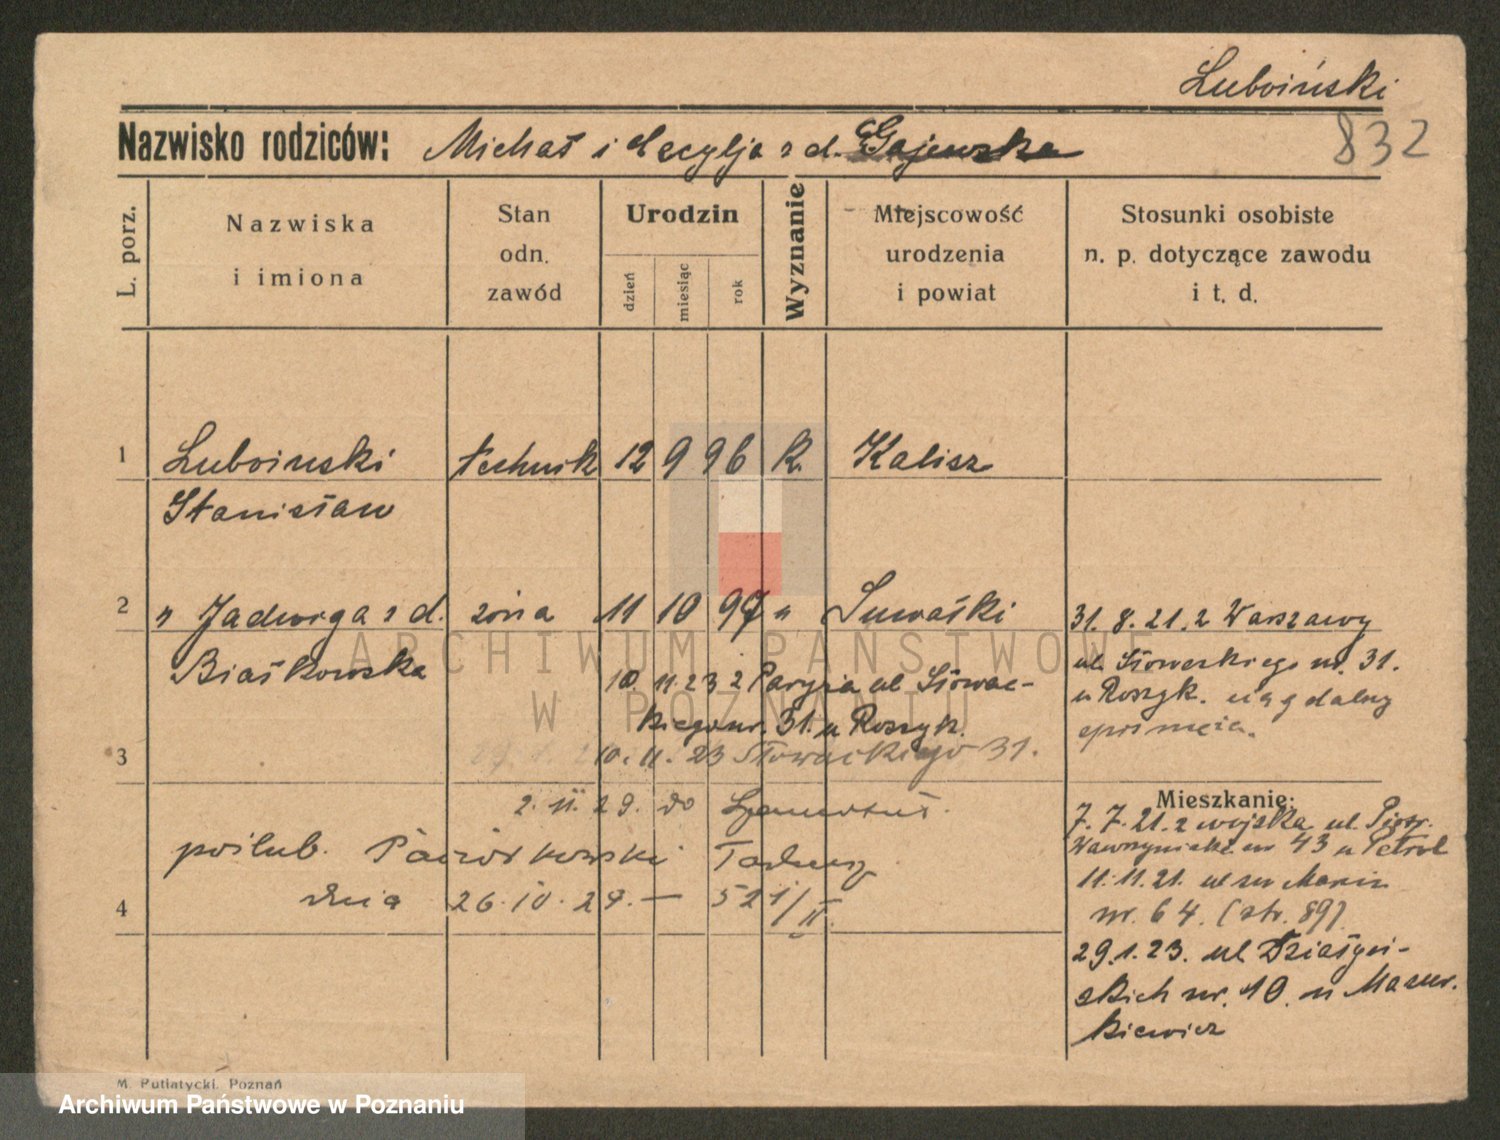 Luboiński
832
Nazwisko rodziców: Michał i Cecylja z d. Gajewska
L. porz.
Nazwiska
i imiona
Stan
odn.
zawód
Urodzin
dzień
miesiąc
rok
Wyznanie
Miejscowość
urodzenia
i powiat
Stosunki osobiste
n. p. dotyczące zawodu
i t. d.
1 Luboinski technik 12 9 96 k. Kalisz
Stanisław
2 " Jadwiga z d. żona 11 10 97 " Suwałki
Białkowska
31. 8. 21. z Warszawy
ul. Słowackiego nr. 31.
u Roszyk.
10 11 23 z Paryża ul Słowac-
kiego nr. 31. u Roszyk.
3 10. 11. 23 Słowackiego 31.
2. 11. 29. do
poślub.
4 dnia 26. 10. 29. — 521/II.
Mieszkanie:
7. 7. 21. z wojska ul.
Wawrzyniaka nr 43 u
11. 11. 21. ul
nr. 64. (str. 89)
29. 1. 23. ul Działyń-
skich nr. 10. u Mazur-
kiewicz
ARCHIWUM PAŃSTWOWE
W POZNANIU
M. Putiatycki. Poznań
Archiwum Państwowe w Poznaniu